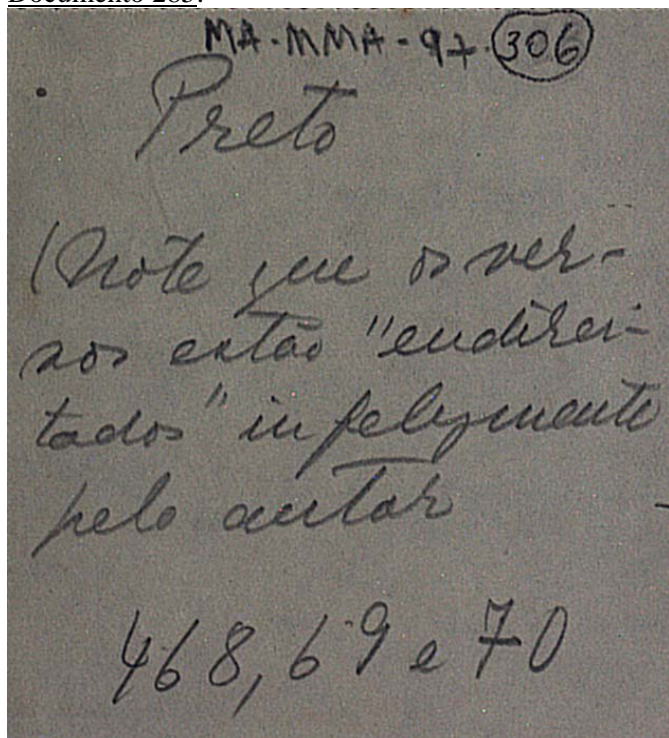 Documento 285:
MA-MMA-97-306
Preto
(Note que os ver-
sos estão "endirei-
tados" infelizmente
pelo autor
468, 69 e 70